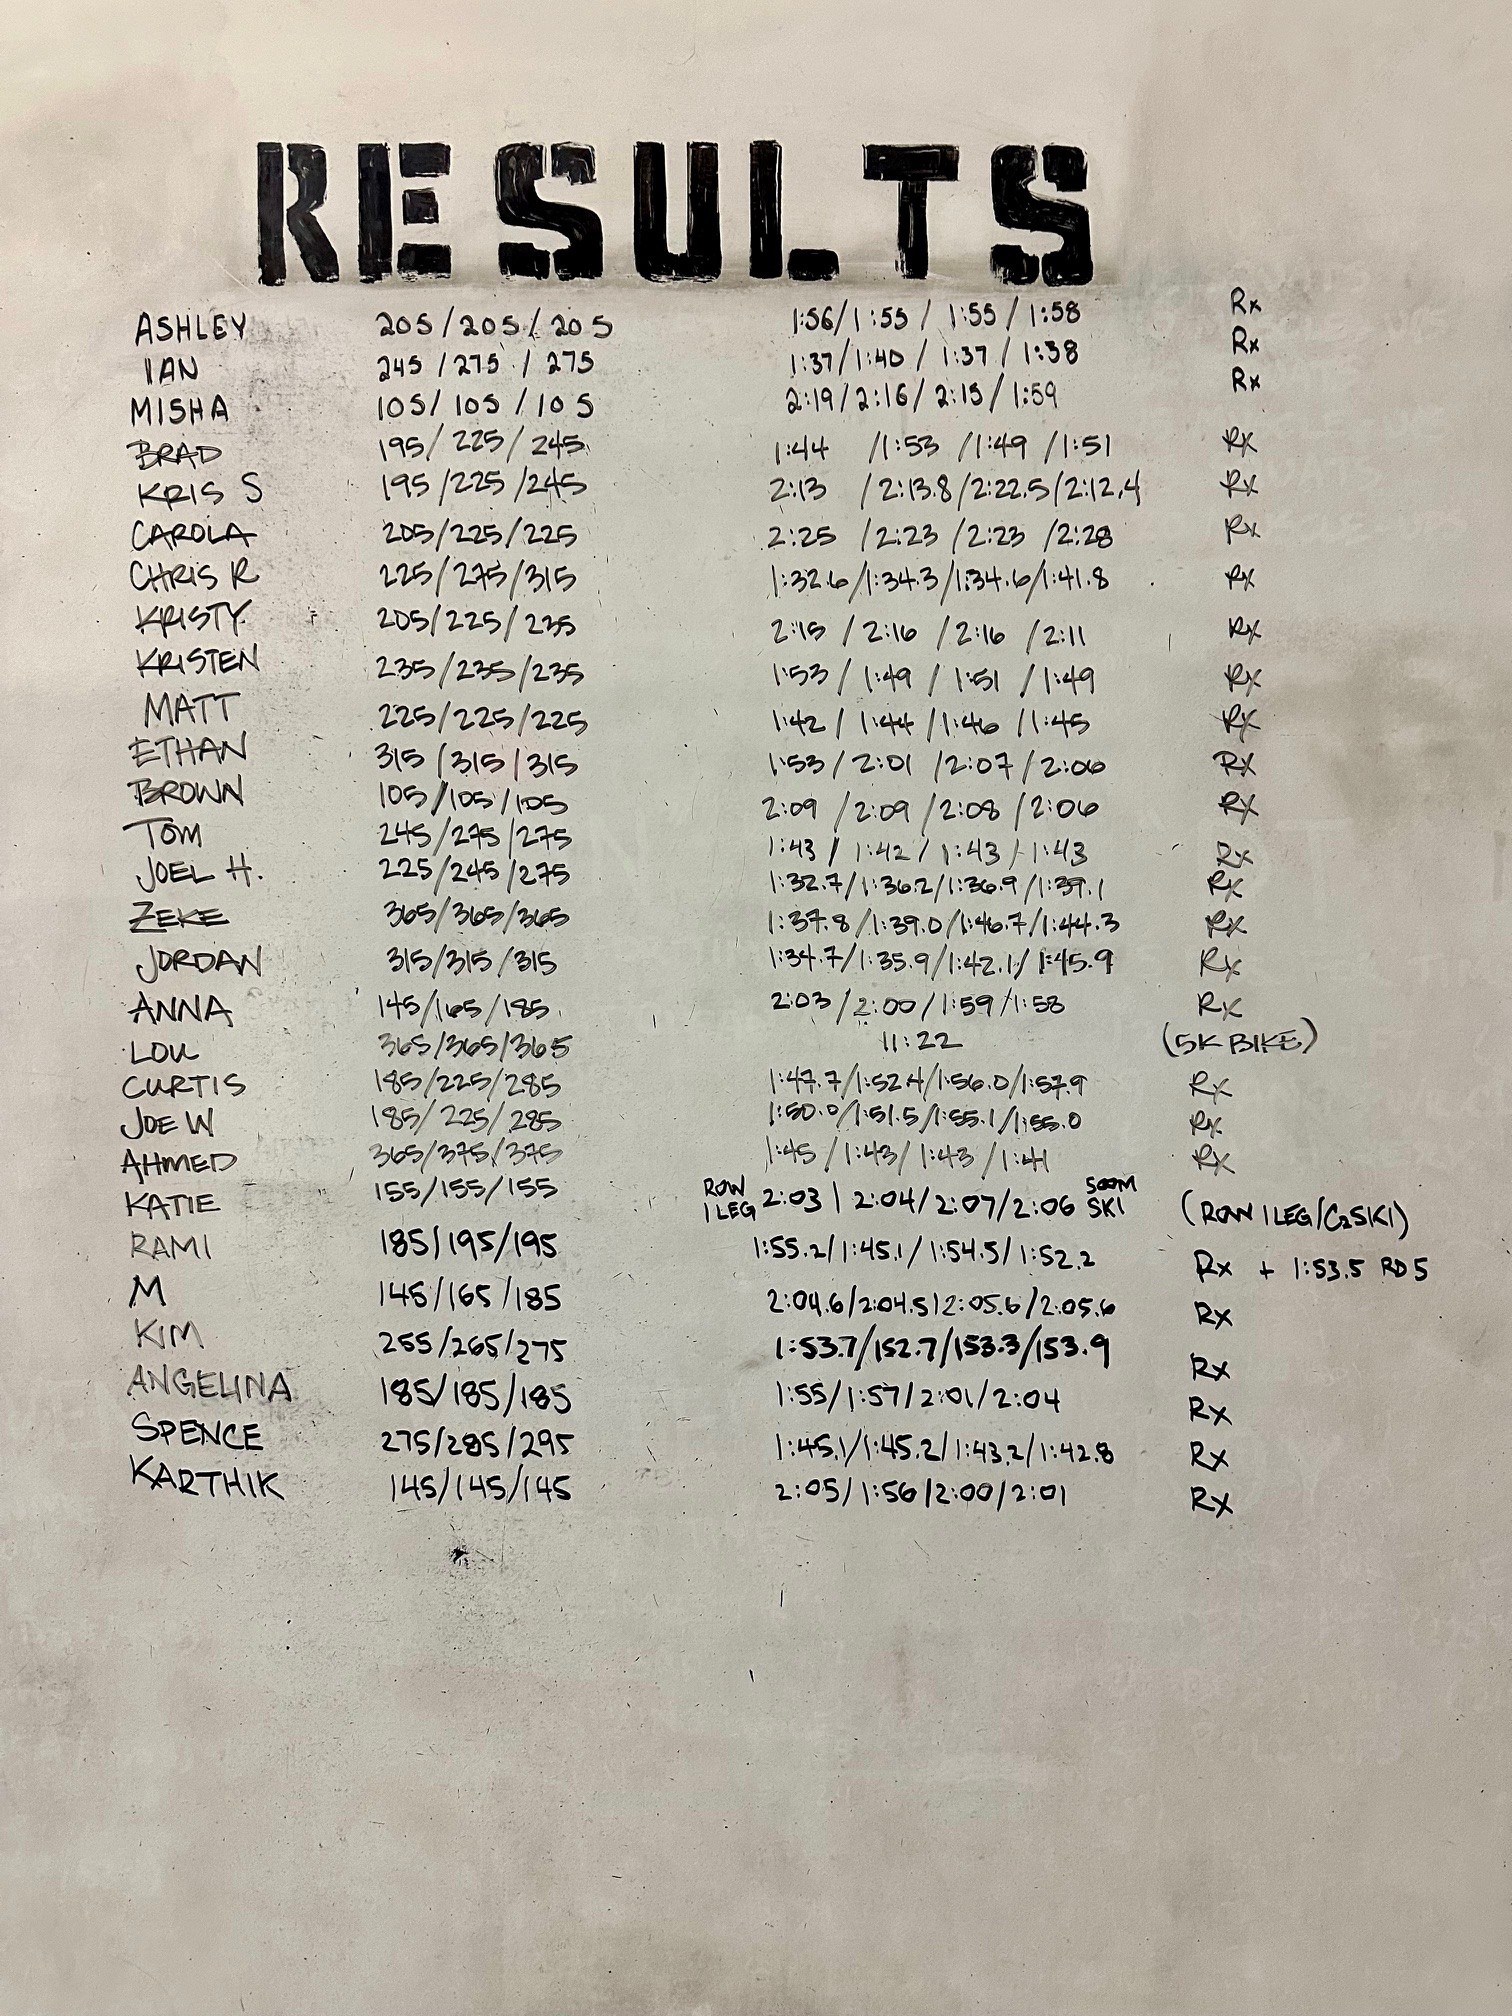 RESULTS
ASHLEY 205/205/205 1:56/1:55/1:55/1:58 Rx
IAN 245/275/275 1:37/1:40/1:37/1:38 Rx
MISHA 105/105/105 2:19/2:16/2:15/1:59 Rx
BRAD 195/225/245 1:44/1:53/1:49/1:51 Rx
KRIS S 195/225/245 2:13/2:13.8/2:22.5/2:12.4 Rx
CAROLA 205/225/225 2:25/2:23/2:23/2:28 Rx
CHRIS R 225/275/315 1:32.6/1:34.3/1:34.6/1:41.8 Rx
KRISTY 205/225/235 2:15/2:16/2:16/2:11 Rx
KRISTEN 235/235/235 1:53/1:49/1:51/1:49 Rx
MATT 225/225/225 1:42/1:44/1:46/1:45 Rx
ETHAN 315/315/315 1:53/2:01/2:07/2:06 Rx
BROWN 105/105/105 2:09/2:09/2:08/2:06 Rx
TOM 245/275/275 1:43/1:42/1:43/1:43 Rx
JOEL H. 225/245/275 1:32.7/1:36.2/1:36.9/1:39.1 Rx
ZEKE 365/365/365 1:37.8/1:39.0/1:46.7/1:44.3 Rx
JORDAN 315/315/315 1:34.7/1:35.9/1:42.1/1:45.9 Rx
ANNA 145/165/185 2:03/2:00/1:59/1:58 Rx
LOU 365/365/365 11:22 (5K BIKE)
CURTIS 185/225/285 1:47.7/1:52.4/1:56.0/1:57.9 Rx
JOE W 185/225/285 1:50.0/1:51.5/1:55.1/1:55.0 Rx
AHMED 365/375/375 1:45/1:43/1:43/1:41 Rx
KATIE 155/155/155 ROW 1 LEG 2:03/2:04/2:07/2:06 500M SKI (ROW 1 LEG/C2SKI)
RAMI 185/195/195 1:55.2/1:45.1/1:54.5/1:52.2 Rx + 1:53.5 RD 5
M 145/165/185 2:04.6/2:04.5/2:05.6/2:05.6 Rx
KIM 255/265/275 1:53.7/152.7/153.3/153.9 Rx
ANGELINA 185/185/185 1:55/1:57/2:01/2:04 Rx
SPENCE 275/285/295 1:45.1/1:45.2/1:43.2/1:42.8 Rx
KARTHIK 145/145/145 2:05/1:56/2:00/2:01 Rx